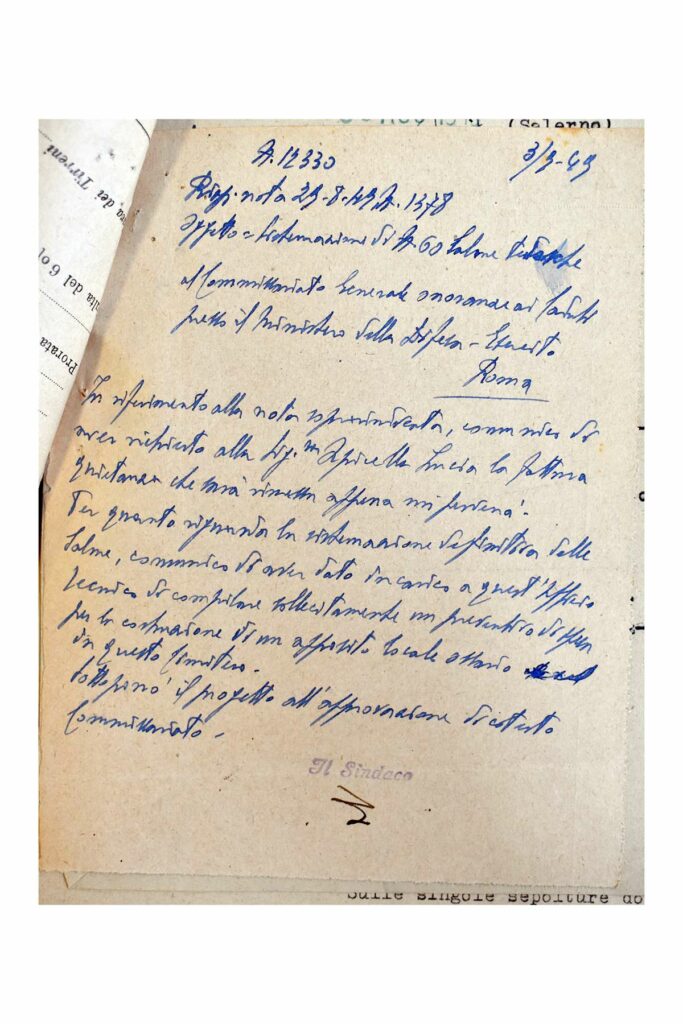 (Salerno)
dei Tirreni
alta del 6 o
Prorata
N. 12330 3/9-49
Risp. nota 29-8-49 N. 1378
Oggetto = Sistemazione di N. 60 Salme tedesche
al Commissariato Generale onoranze ai Caduti
presso il Ministero della Difesa - Esercito
Roma
In riferimento alla nota sopraindicata, comunico di
aver richiesto alla Sig.ra Apicella Lucia la fattura
quietanza che sarà rimessa appena mi perverrà.
Per quanto riguarda la sistemazione definitiva delle
Salme, comunico di aver dato incarico a quest'Ufficio
tecnico di compilare sollecitamente un preventivo di spesa
per la costruzione di un apposito locale ossario
in questo Cimitero.
Sottoporrò il progetto all'approvazione di cotesto
Commissariato.
Il Sindaco
Sulle singole sepolture do